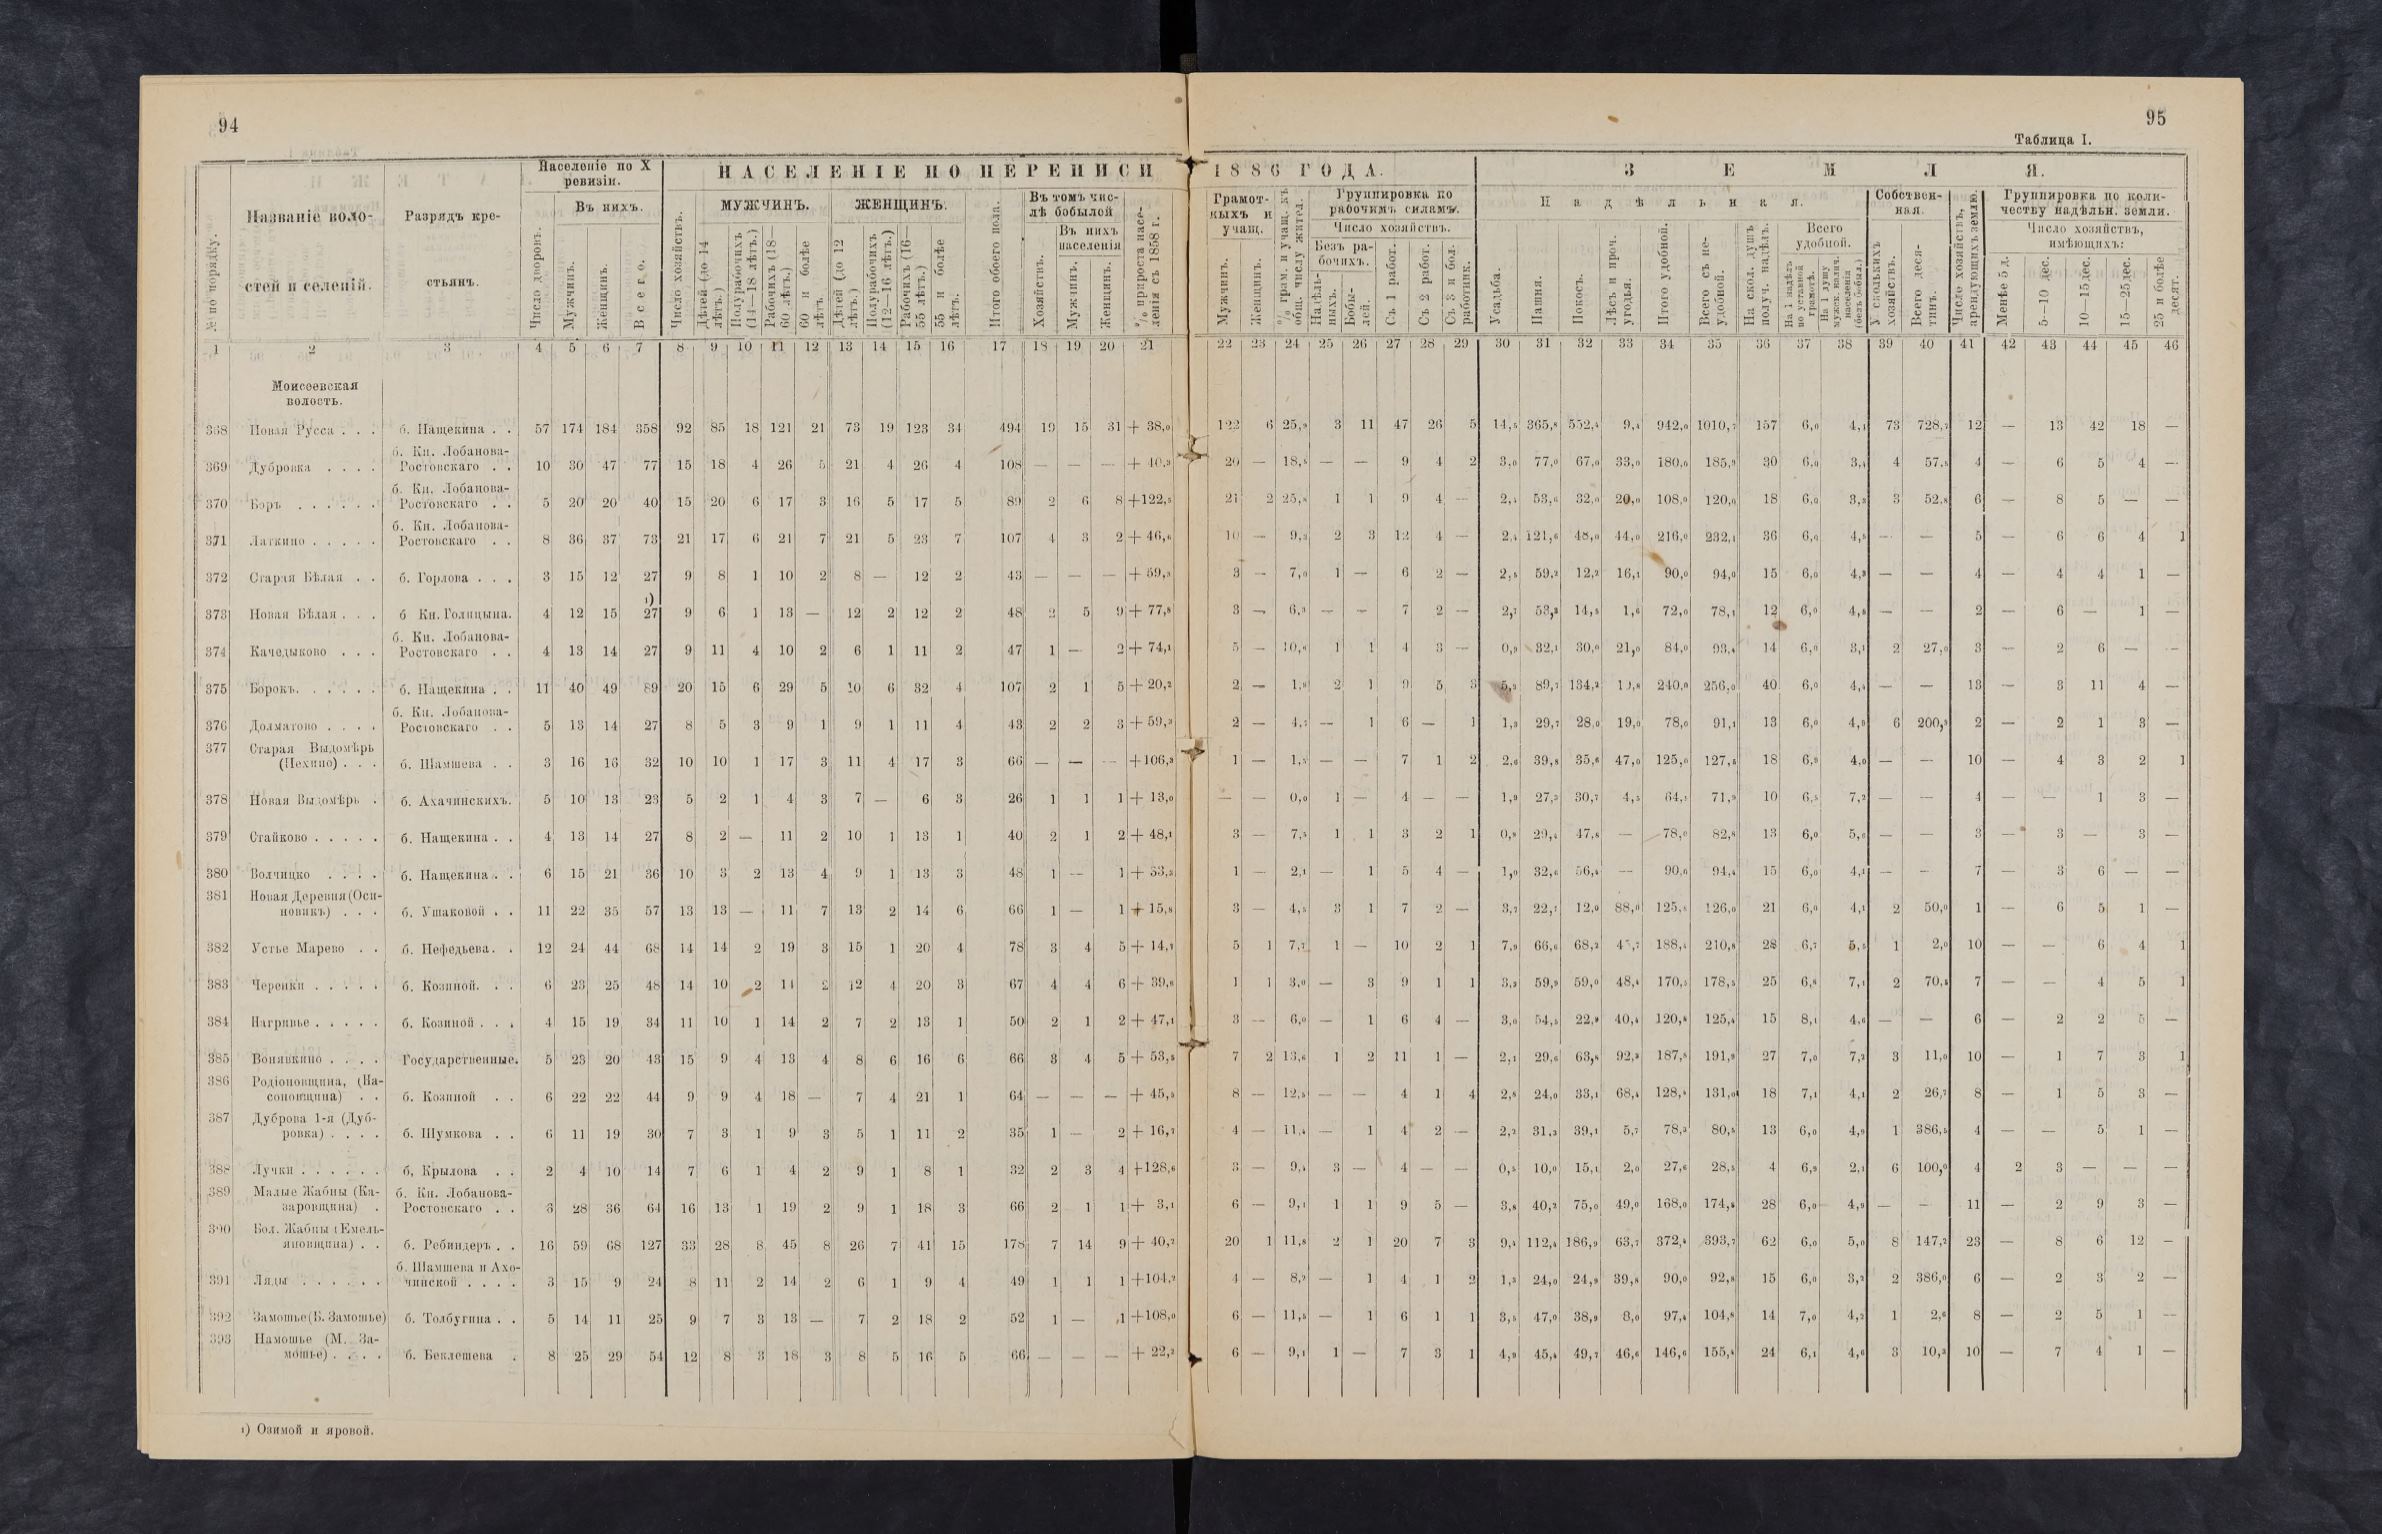 94
95
Таблица I.
Населеніе по X ревизіи.
НАСЕЛЕНІЕ ПО ПЕРЕПИСИ 1886 ГОДА.
ЗЕМЛЯ.
№ по порядку.
Названіе волостей и селеній.
Разрядъ крестьянъ.
Число дворовъ.
Въ нихъ.
Мужчинъ.
Женщинъ.
Всего.
Число хозяйствъ.
МУЖЧИНЪ.
Дѣтей (до 14 лѣтъ.)
Полурабочихъ (14—18 лѣтъ.)
Рабочихъ (18—60 лѣтъ.)
60 и болѣе лѣтъ.
ЖЕНЩИНЪ.
Дѣтей (до 12 лѣтъ.)
Полурабочихъ (12—16 лѣтъ.)
Рабочихъ (16—55 лѣтъ.)
55 и болѣе лѣтъ.
Итого обоего пола.
Въ томъ числѣ бобылей
Хозяйствъ.
Въ нихъ населенія
Мужчинъ.
Женщинъ.
% прироста населенія съ 1858 г.
Грамотныхъ и учащ.
Мужчинъ.
Женщинъ.
% грам. и учащ. къ общ. числу жител.
Группировка по рабочимъ силамъ.
Число хозяйствъ.
Безъ рабочихъ.
Надѣльныхъ.
Бобылей.
Съ 1 работ.
Съ 2 работ.
Съ 3 и бол. работник.
Надѣльная.
Усадьба.
Пашня.
Покосъ.
Лѣсъ и проч. угодья.
Итого удобной.
Всего съ неудобной.
На скол. душъ получ. надѣлъ.
Всего удобной.
На 1 надѣлъ по уставной грамотѣ.
На 1 душу мужск. налич. населенія (безъ бобыл.)
Собственная.
У сколькихъ хозяйствъ.
Всего десятинъ.
Число хозяйствъ, арендующихъ землю.
Группировка по количеству надѣльн. земли.
Число хозяйствъ, имѣющихъ:
Менѣе 5 д.
5—10 дес.
10—15 дес.
15—25 дес.
25 и болѣе десят.
1 2 3 4 5 6 7 8 9 10 11 12 13 14 15 16 17 18 19 20 21 22 23 24 25 26 27 28 29 30 31 32 33 34 35 36 37 38 39 40 41 42 43 44 45 46
Моисеевская
волость.
368 Новая Русса . . . б. Нащекина . . 57 174 184 358 92 85 18 121 21 73 19 123 34 494 19 15 31 + 38,0 122 6 25,9 3 11 47 26 5 14,5 365,8 552,4 9,4 942,0 1010,7 157 6,0 4,1 73 728,7 12 — 13 42 18 —
б. Кн. Лобанова-
369 Дубровка . . . . Ростовскаго . . 10 30 47 77 15 18 4 26 5 21 4 26 4 108 — — — + 40,3 20 — 18,5 — — 9 4 2 3,0 77,0 67,0 33,0 180,0 185,9 30 6,0 3,4 4 57,5 4 — 6 5 4 —
б. Кн. Лобанова-
370 Боръ . . . . . . Ростовскаго . . 5 20 20 40 15 20 6 17 3 16 5 17 5 89 2 6 8 +122,5 21 2 25,8 1 1 9 4 — 2,4 53,6 32,0 20,0 108,0 120,0 18 6,0 3,3 3 52,8 6 — 8 5 — —
б. Кн. Лобанова-
371 Латкино . . . . . Ростовскаго . . 8 36 37 73 21 17 6 21 7 21 5 23 7 107 4 3 2 + 46,6 10 — 9,3 2 3 12 4 — 2,4 121,6 48,0 44,0 216,0 232,1 36 6,0 4,5 — — 5 — 6 6 4 1
372 Старая Бѣлая . . б. Горлова . . . 3 15 12 27 9 8 1 10 2 8 — 12 2 43 — — — + 59,3 3 — 7,0 1 — 6 2 — 2,5 59,2 12,2 16,1 90,0 94,0 15 6,0 4,3 — — 4 — 4 4 1 —
373 Новая Бѣлая . . . б Кн. Голицына. 4 12 15 27 ¹) 9 6 1 13 — 12 2 12 2 48 2 5 9 + 77,8 3 — 6,3 — — 7 2 — 2,7 53,2 14,5 1,6 72,0 78,1 12 6,0 4,8 — — 2 — 6 — 1 —
б. Кн. Лобанова-
374 Качедыково . . . Ростовскаго . . 4 13 14 27 9 11 4 10 2 6 1 11 2 47 1 — 2 + 74,1 5 — 10,6 1 1 4 3 — 0,9 32,1 30,0 21,0 84,0 93,4 14 6,0 3,1 2 27,0 3 — 2 6 — —
375 Борокъ. . . . . . б. Нащекина . . 11 40 49 89 20 15 6 29 5 10 6 32 4 107 2 1 5 + 20,2 2 — 1,9 2 1 9 5 3 5,3 89,7 134,2 10,8 240,0 256,0 40 6,0 4,4 — — 13 — 3 11 4 —
б. Кн. Лобанова-
376 Долматово . . . . Ростовскаго . . 5 13 14 27 8 5 3 9 1 9 1 11 4 43 2 2 3 + 59,3 2 — 4,7 — 1 6 — 1 1,3 29,7 28,0 19,0 78,0 91,1 13 6,0 4,9 6 200,3 2 — 2 1 3 —
377 Старая Выдомѣрь
(Пехино) . . . б. Шамшева . . 3 16 16 32 10 10 1 17 3 11 4 17 3 66 — — — +106,3 1 — 1,5 — — 7 1 2 2,6 39,8 35,6 47,0 125,0 127,5 18 6,9 4,0 — — 10 — 4 3 2 1
378 Новая Выдомѣрь . б. Ахачинскихъ. 5 10 13 23 5 2 1 4 3 7 — 6 3 26 1 1 1 + 13,0 — — 0,0 1 — 4 — — 1,9 27,3 30,7 4,5 64,4 71,9 10 6,5 7,2 — — 4 — — 1 3 —
379 Стайково . . . . . б. Нащекина . . 4 13 14 27 8 2 — 11 2 10 1 13 1 40 2 1 2 + 48,1 3 — 7,5 1 1 3 2 1 0,8 29,4 47,8 — 78,0 82,8 13 6,0 5,6 — — 3 — 3 — 3 —
380 Волчицко . . . . б. Нащекина . . 6 15 21 36 10 3 2 13 4 9 1 13 3 48 1 — 1 + 33,3 1 — 2,1 — 1 5 4 — 1,0 32,6 56,4 — 90,0 94,4 15 6,0 4,1 — — 7 — 3 6 — —
381 Новая Деревня (Оси-
новикъ) . . . б. Ушаковой . . 11 22 35 57 13 13 — 11 7 13 2 14 6 66 1 — 1 + 15,8 3 — 4,5 3 1 7 2 — 3,7 22,1 12,0 88,0 125,8 126,0 21 6,0 4,1 2 50,0 1 — 6 5 1 —
382 Устье Марево . . б. Нефедьева. . 12 24 44 68 14 14 2 19 3 15 1 20 4 78 3 4 5 + 14,7 5 1 7,7 1 — 10 2 1 7,9 66,6 68,2 45,7 188,4 210,8 28 6,7 5,5 1 2,0 10 — — 6 4 1
383 Черенки . . . . . б. Козиной. . . 6 23 25 48 14 10 2 14 2 12 4 20 3 67 4 4 6 + 39,6 1 1 3,0 — 3 9 1 1 3,2 59,9 59,0 48,4 170,5 178,5 25 6,8 7,1 2 70,5 7 — — 4 5 1
384 Нагривье . . . . . б. Козиной . . . 4 15 19 34 11 10 1 14 2 7 2 13 1 50 2 1 2 + 47,1 3 — 6,0 — 1 6 4 — 3,0 54,5 22,9 40,4 120,8 125,4 15 8,1 4,6 — — 6 — 2 2 5 —
385 Вонявкино . . . . Государственные. 5 23 20 43 15 9 4 13 4 8 6 16 6 66 3 4 5 + 53,5 7 2 13,6 1 2 11 1 — 2,1 29,6 63,8 92,3 187,8 191,9 27 7,0 7,2 3 11,0 10 — 1 7 3 1
386 Родіоновщина, (На-
соновщина) . . б. Козиной . . 6 22 22 44 9 9 4 18 — 7 4 21 1 64 — — — + 45,5 8 — 12,5 — — 4 1 4 2,8 24,0 33,1 68,4 128,4 131,0 18 7,1 4,1 2 26,7 8 — 1 5 3 —
387 Дуброва 1-я (Дуб-
ровка) . . . . б. Шумкова . . 6 11 19 30 7 3 1 9 3 5 1 11 2 35 1 — 2 + 16,7 4 — 11,4 — 1 4 2 — 2,2 31,3 39,1 5,7 78,3 80,5 13 6,0 4,9 1 386,5 4 — — 5 1 —
388 Лучки . . . . . . б. Крылова . . 2 4 10 14 7 6 1 4 2 9 1 8 1 32 2 3 4 +128,6 3 — 9,4 3 — 4 — — 0,5 10,0 15,1 2,0 27,6 28,5 4 6,9 2,1 6 100,0 4 2 3 — — —
389 Малые Жабны (Ка- б. Кн. Лобанова-
заровщина) . Ростовскаго . . 3 28 36 64 16 13 1 19 2 9 1 18 3 66 2 1 1 + 3,1 6 — 9,1 1 1 9 5 — 3,8 40,2 75,0 49,0 168,0 174,8 28 6,0 4,9 — — 11 — 2 9 3 —
390 Бол. Жабны (Емель-
яновщина) . . б. Ребиндеръ . . 16 59 68 127 33 28 8 45 8 26 7 41 15 178 7 14 9 + 40,2 20 1 11,8 2 1 20 7 3 9,4 112,4 186,9 63,7 372,4 393,7 62 6,0 5,0 8 147,2 23 — 8 6 12 —
б. Шамшева и Ахо-
391 Ляды . . . . . . чинской . . . . 3 15 9 24 8 11 2 14 2 6 1 9 4 49 1 1 1 +104,2 4 — 8,2 — 1 4 1 2 1,3 24,0 24,9 39,8 90,0 92,8 15 6,0 3,2 2 386,0 6 — 2 3 2 —
392 Замошье (Б. Замошье) б. Толбугина . . 5 14 11 25 9 7 3 13 — 7 2 18 2 52 1 — 1 +108,0 6 — 11,5 — 1 6 1 1 3,5 47,0 38,9 8,0 97,4 104,8 14 7,0 4,2 1 2,6 8 — 2 5 1 —
393 Намошье (М. За-
мошье) . . . . б. Беклешева . 8 25 29 54 12 8 3 18 3 8 5 16 5 66 — — — + 22,2 6 — 9,1 1 — 7 3 1 4,9 45,4 49,7 46,6 146,6 155,4 24 6,1 4,6 3 10,3 10 — 7 4 1 —
¹) Озимой и яровой.